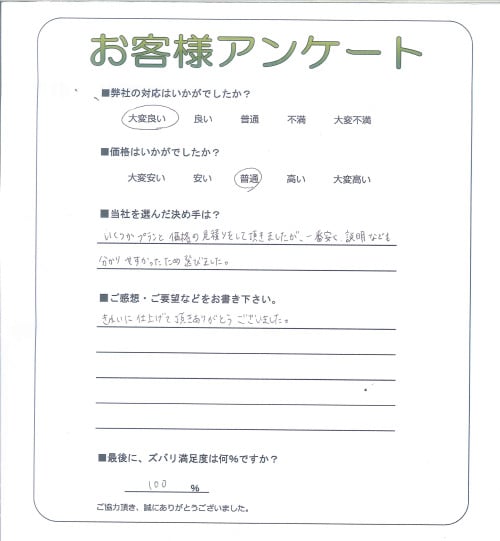 お客様アンケート
■弊社の対応はいかがでしたか？
大変良い 良い 普通 不満 大変不満
■価格はいかがでしたか？
大変安い 安い 普通 高い 大変高い
■当社を選んだ決め手は？
いくつかプランと価格の見積りをして頂きましたが、一番安く説明なども
分かりやすかったため選びました。
■ご感想・ご要望などをお書き下さい。
きれいに仕上げて頂きありがとうございました。
■最後に、ズバリ満足度は何％ですか？
100 %
ご協力頂き、誠にありがとうございました。